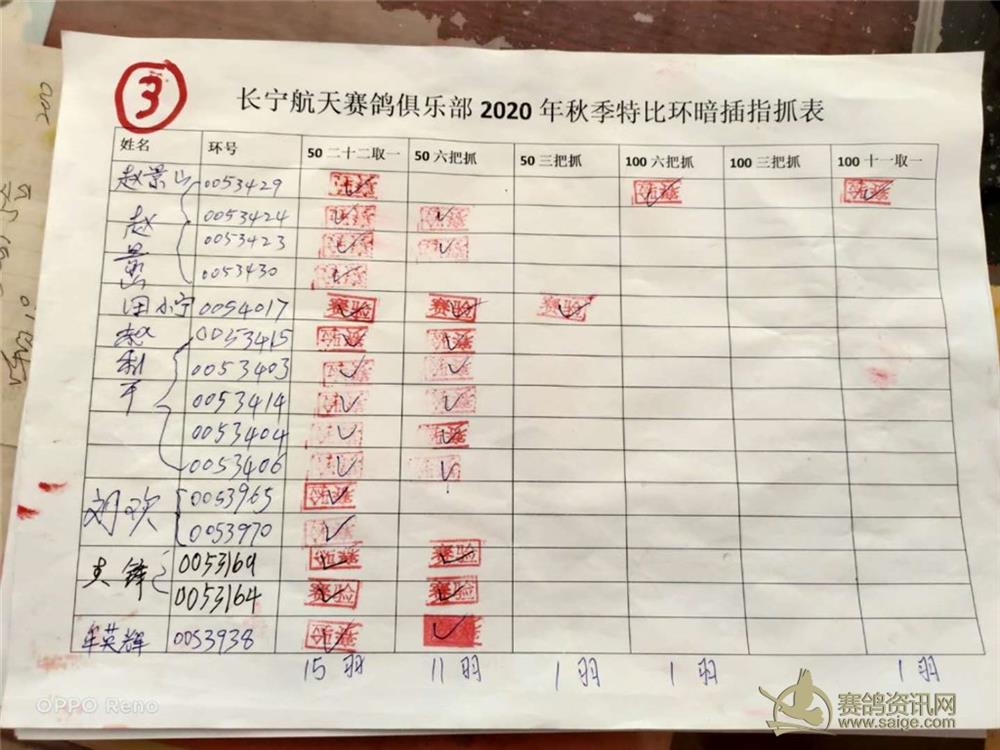 ③
长宁航天赛鸽俱乐部 2020 年秋季特比环暗插指抓表
姓名 环号 50 二十二取一 50 六把抓 50 三把抓 100 六把抓 100 三把抓 100 十一取一
赵景山 0053429
赵景山 0053424
0053423
0053430
田小宁 0054017 赛验 赛验 赛验
赵利平 0053415
0053403
0053414
0053404
0053406
刘欢 0053965
0053970
锋 0053169 赛验
0053164 赛验 赛验
牟英辉 0053938
15羽 11羽 1羽 1羽 1羽
OPPO Reno
赛鸽资讯网
www.saige.com